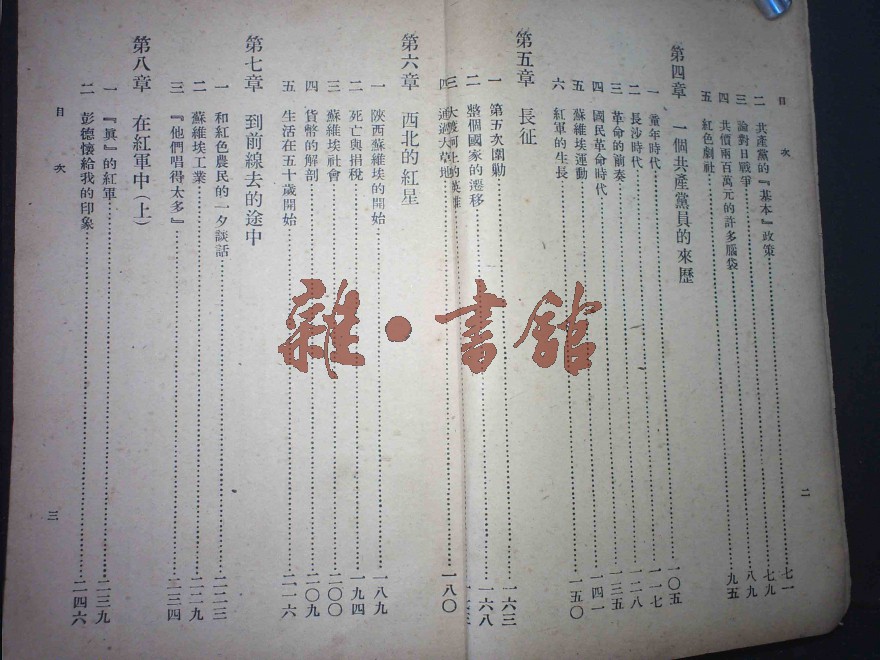 目 次
二
二 共產黨的『基本』政策……七一
三 論對日戰爭……七九
四 共價兩百萬元的許多腦袋……八九
五 紅色劇社……九五
第四章 一個共產黨員的來歷
一 童年時代……一〇五
二 長沙時代……一一七
三 革命的前奏……一二八
四 國民革命時代……一三五
五 蘇維埃運動……一四一
六 紅軍的生長……一五〇
第五章 長征
一 第五次圍勦……一六三
二 整個國家的遷移……一六八
三 大渡河上的英雄……
四 通過大草地……一八〇
第六章 西北的紅星
一 陝西蘇維埃的開始……一八九
二 死亡與捐稅……一九四
三 蘇維埃社會……二〇〇
四 貨幣的解剖……二〇九
五 生活在五十歲開始……二一六
第七章 到前線去的途中
一 和紅色農民的一夕談話……二二三
二 蘇維埃工業……二二九
三 『他們唱得太多』……二三四
第八章 在紅軍中（上）
一 『眞』的紅軍……二三九
二 彭德懷給我的印象……二四六
目 次
三
雜·書館